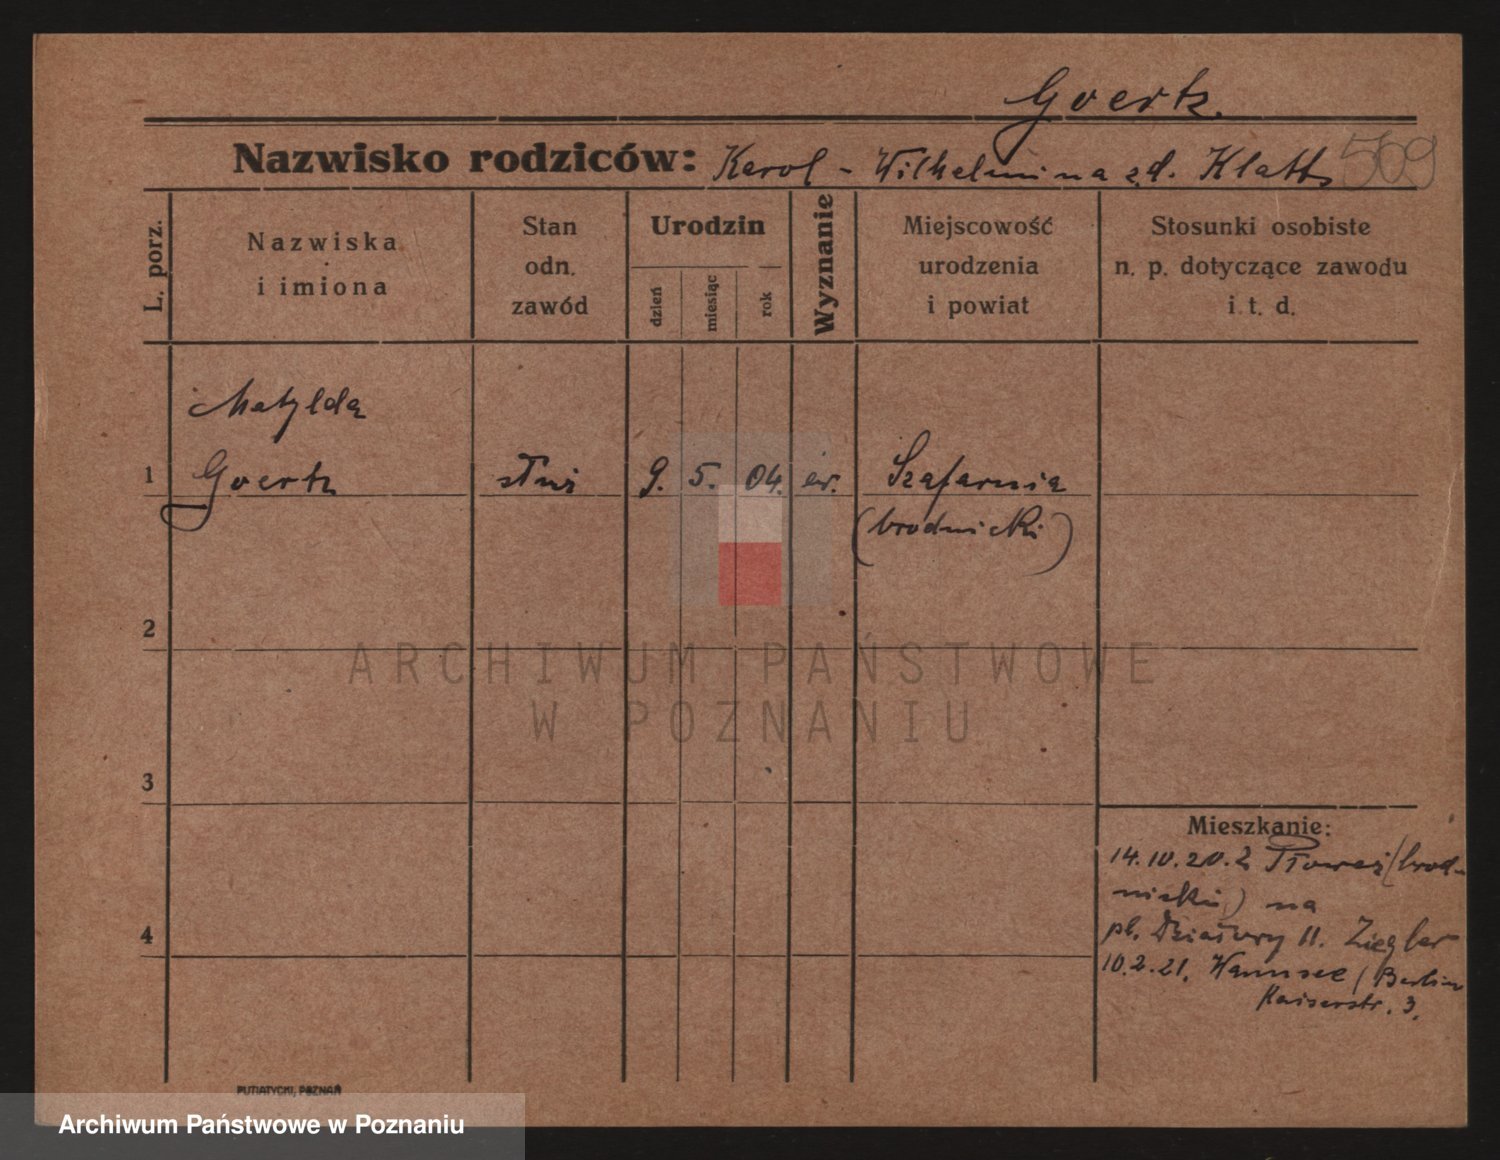 Goertz.
Nazwisko rodziców: Karol - Wilhelmina z d. Klatt 509
L. porz.
Nazwiska
i imiona
Stan
odn.
zawód
Urodzin
dzień
miesiąc
rok
Wyznanie
Miejscowość
urodzenia
i powiat
Stosunki osobiste
n. p. dotyczące zawodu
i t. d.
Matylda
1 Goertz służ 9. 5. 04. ew. Szafarnia
(brodnicki)
2
ARCHIWUM PAŃSTWOWE
W POZNANIU
3
Mieszkanie:
14.10.20. z (brod-
nicki) na
pl. Działowy 11. Ziegler
4
10.2.21. Wannsee / Berlin
Kaiserstr. 3.
PUTIATYCKI, POZNAŃ
Archiwum Państwowe w Poznaniu